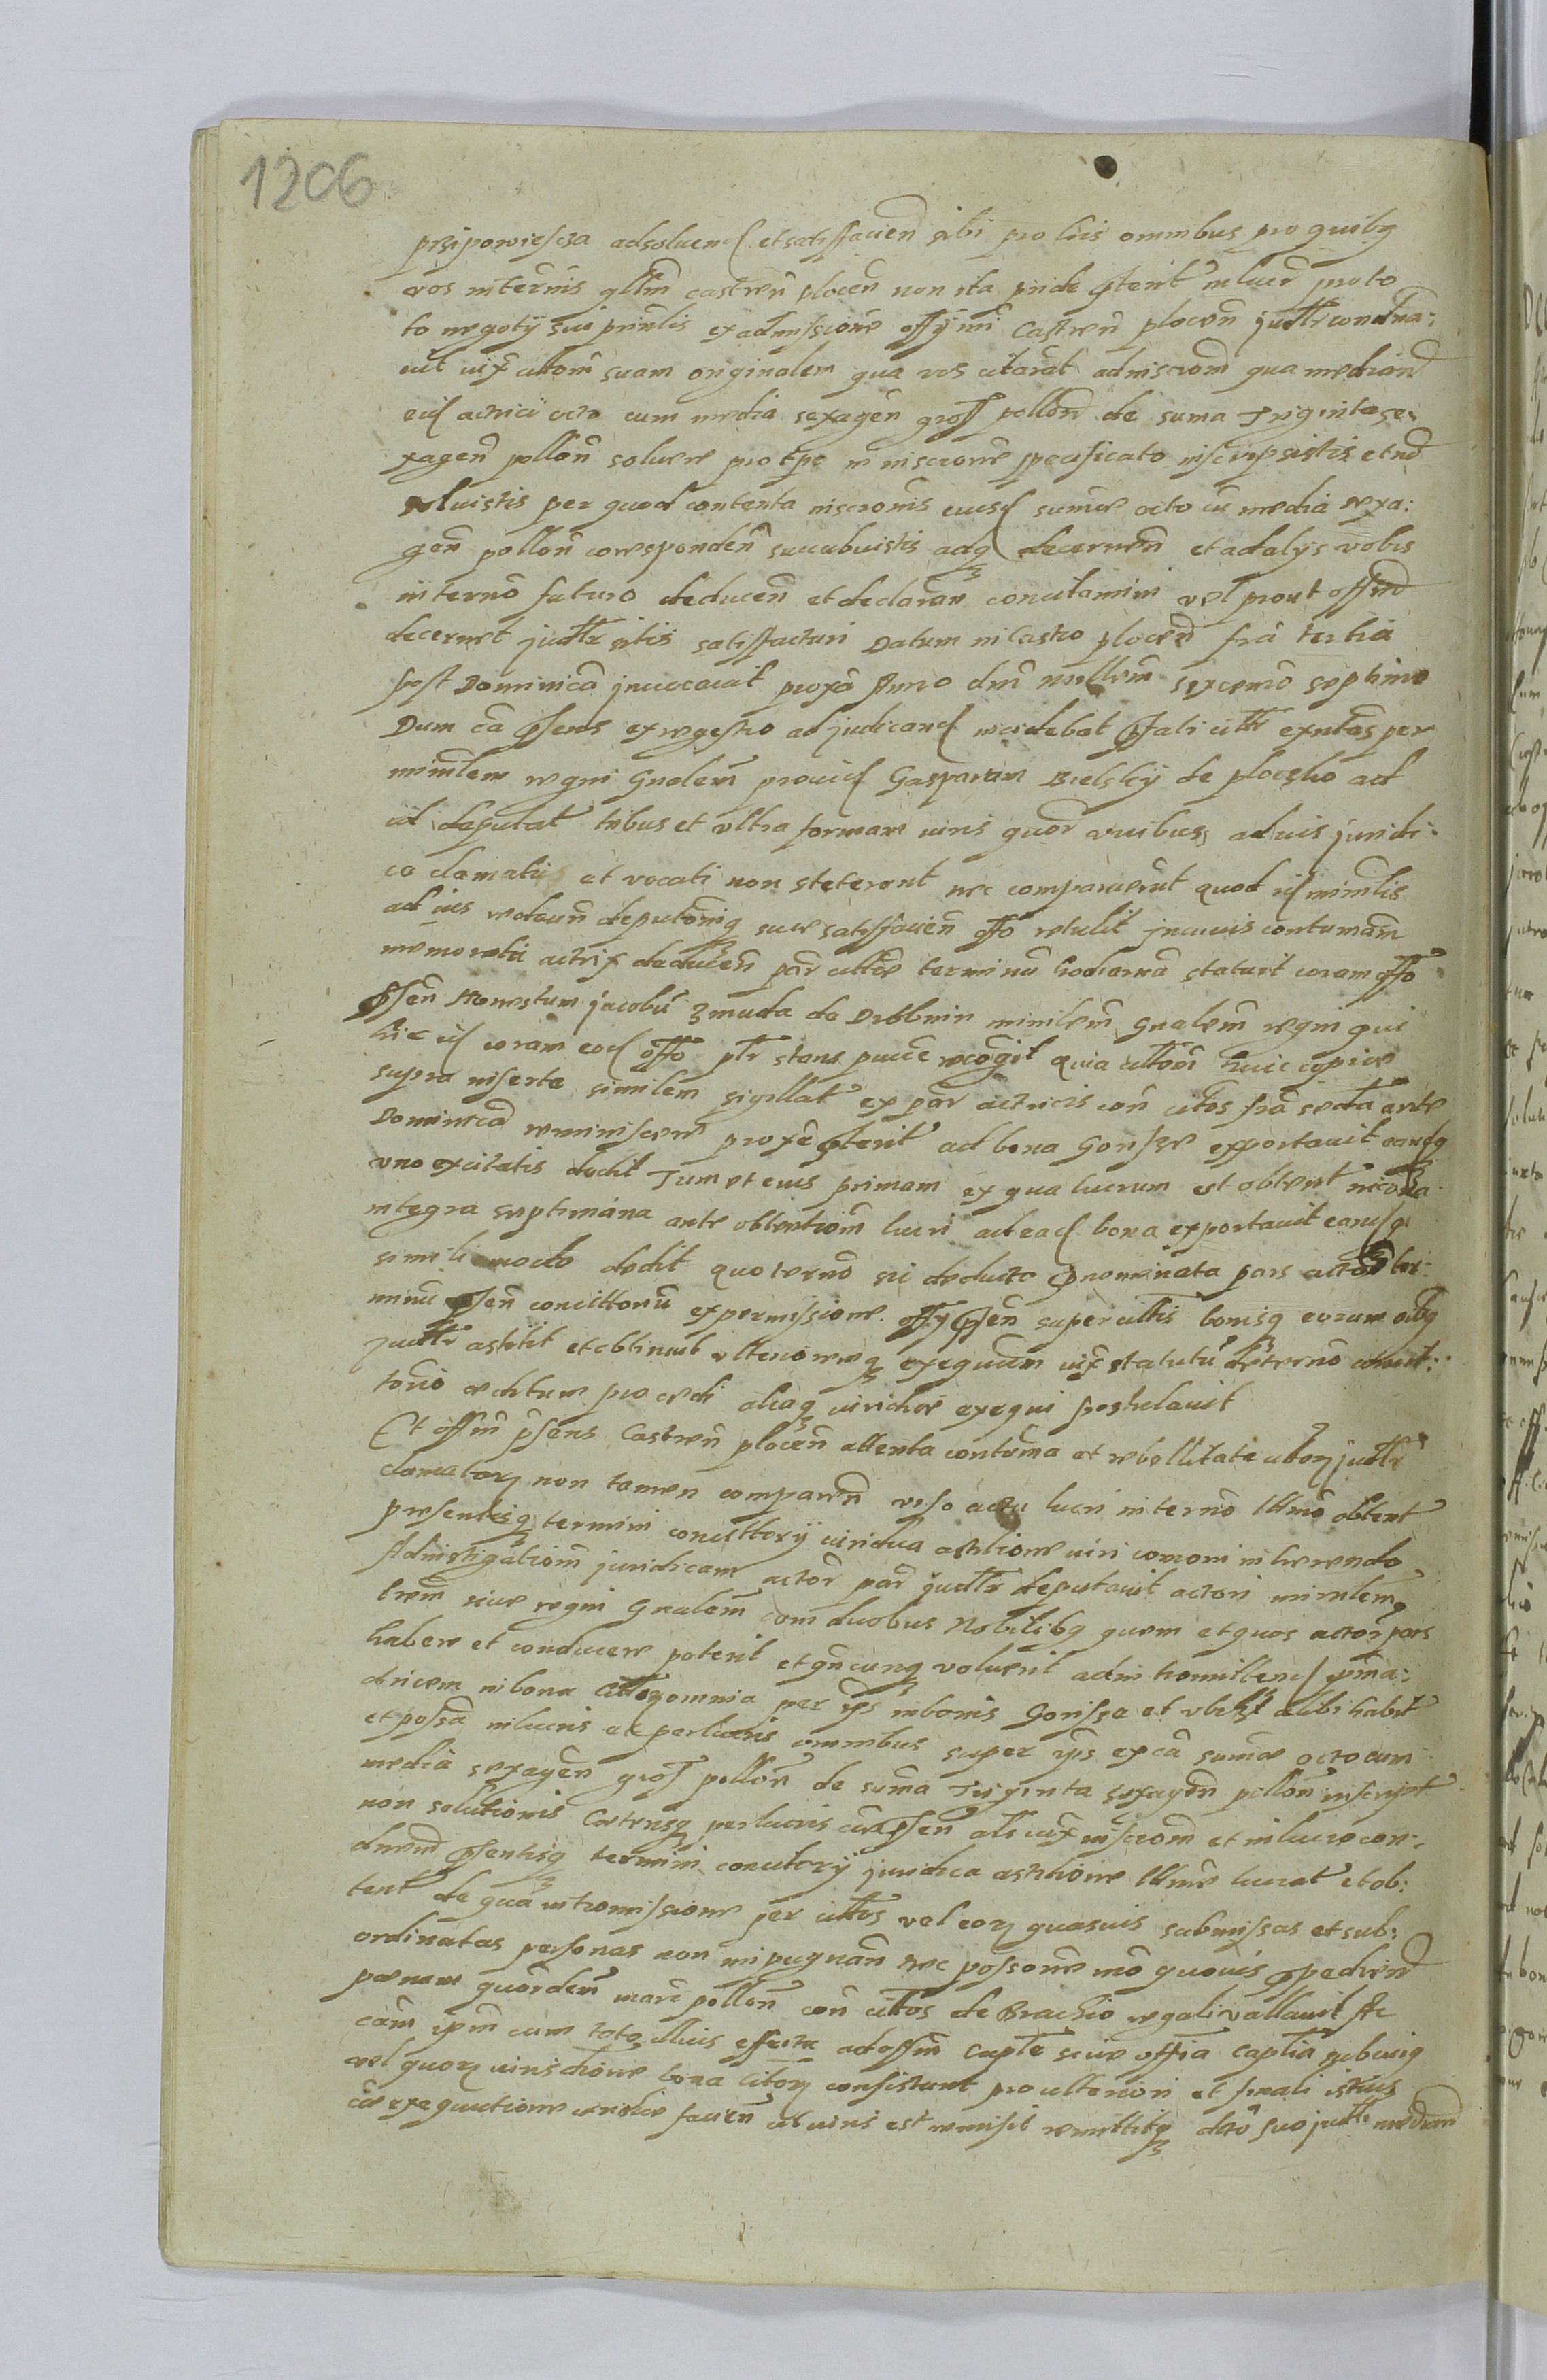 1206
przipowiescza adsoluend et satisfacien sibi pro lucris omnibus pro quibus
vos in terminis qllm castren plocen non ita pride pterit in lucr pro to
to negotÿ sui prinlis ex admissione offÿ mi Castren plocen judtr condna:
uit iux cittom suam originalem qua vos citarat ad inscrom qua median
eid actrici octo cum media sexagen gross pollon de suma Triginta se:
xagen pollon soluere pro tpe in inscrone specificato inscripsistis et no
soluistis per quod contenta inscronis eiusd sumae octo cu media sexa:
gen pollon correspondens succubuistis adq decernen et ad alÿs vobis
in termo futuro deducen et declaran concitamini vel prout offm
decernet judtr sitis satisfacturi Datum in Castro plocen fria tertia
post Dominica jnvocavit proxa Anno dni millem sexcenmo septimo
Dum ca psens ex regestro ad judicand incidebat pfati citti exntes per
ministlem regni Gnalem provid Gasparum Bielskÿ de plocsko ad
id deputat tribus et ultra formam iuris quor vicibus ad uis juridi:
ce clamati et vocati non steterunt nec comparuerunt quod id minstlis
ad ius redeun deputonisq sue satisfacien offo retulit jn cuius contumam
memorata actrix deducen par cittae terminu hodiernu statuit coram offo
psen Honestum jacobu Zmuda de Drobnin ministlem Gnalem regni qui
hic id coram eod offo ptr stans puce recogit quia cittom huic copiae
supra inserte similem sigillat ex par actricis con citos fria sexta ante
Dominica reminiscere proxe pterit ad bona Gonsze exportavit eandq
uno ex citatis dedit Tum et eius primam ex qua lucrum est obtent
integra septimana ante obtentiom lucri ad ead bona exportavit eandq
simili modo dedit quo termo sic deducto pnominata pars actor ter:
minu psen concittonu ex permissione offÿ psen super cittis bonisq eorum oibq
judtr astitit et obtinuit ulteriosq exequim iux statutu de termo concit:
torio editum procedi aliaq iuridice exequi postulavit
Et offm psens Castren plocen attenta contuma et rebellitate citor judtr
clamator non tamen comparen viso actu lucri in termo Ittmo obtent
presentisq termini concittorÿ iuridica astitione iuri comoni inherendo
Ad instigatiom juridicam actor par judtr deputavit actori ministlemq
trem sive regni Gnalem cum duobus Nobilibq quem et quos actor pars
habere et conducere poterit et qncunq voluerit ad intromittend pma:
dricem in bona cittor omnia per ips in bonis Gonsze et ubi alibi habit
et possa in lucris et perlucris omnibus super ips ex ca sumae octo cum
media sexagen gross pollon de suma Triginta sexagen pollon inscript
non solutionis Caetrisq perlucris ca psen als iux inscrom et in lucro con:
dnend psentisq termini concitorÿ juridica astitione Ittme lucrat et ob:
tent de qua intromissione per cittos vel eor quasuis submissas et sub:
ordinatas personas non impugnan nec possone mo quouis expedien
poenam quordem marc pollon con citos de Brachio regali vallavit Ac
cam ipm cum toto illius effectu ad offm Capta sive offia Captia sub cuiq
vel quor iurisditione bona citor consistunt pro ulteriori et finali istius
cae exequutione iuridice facien ut iuris est remisit remittitq dcto suo judtr median